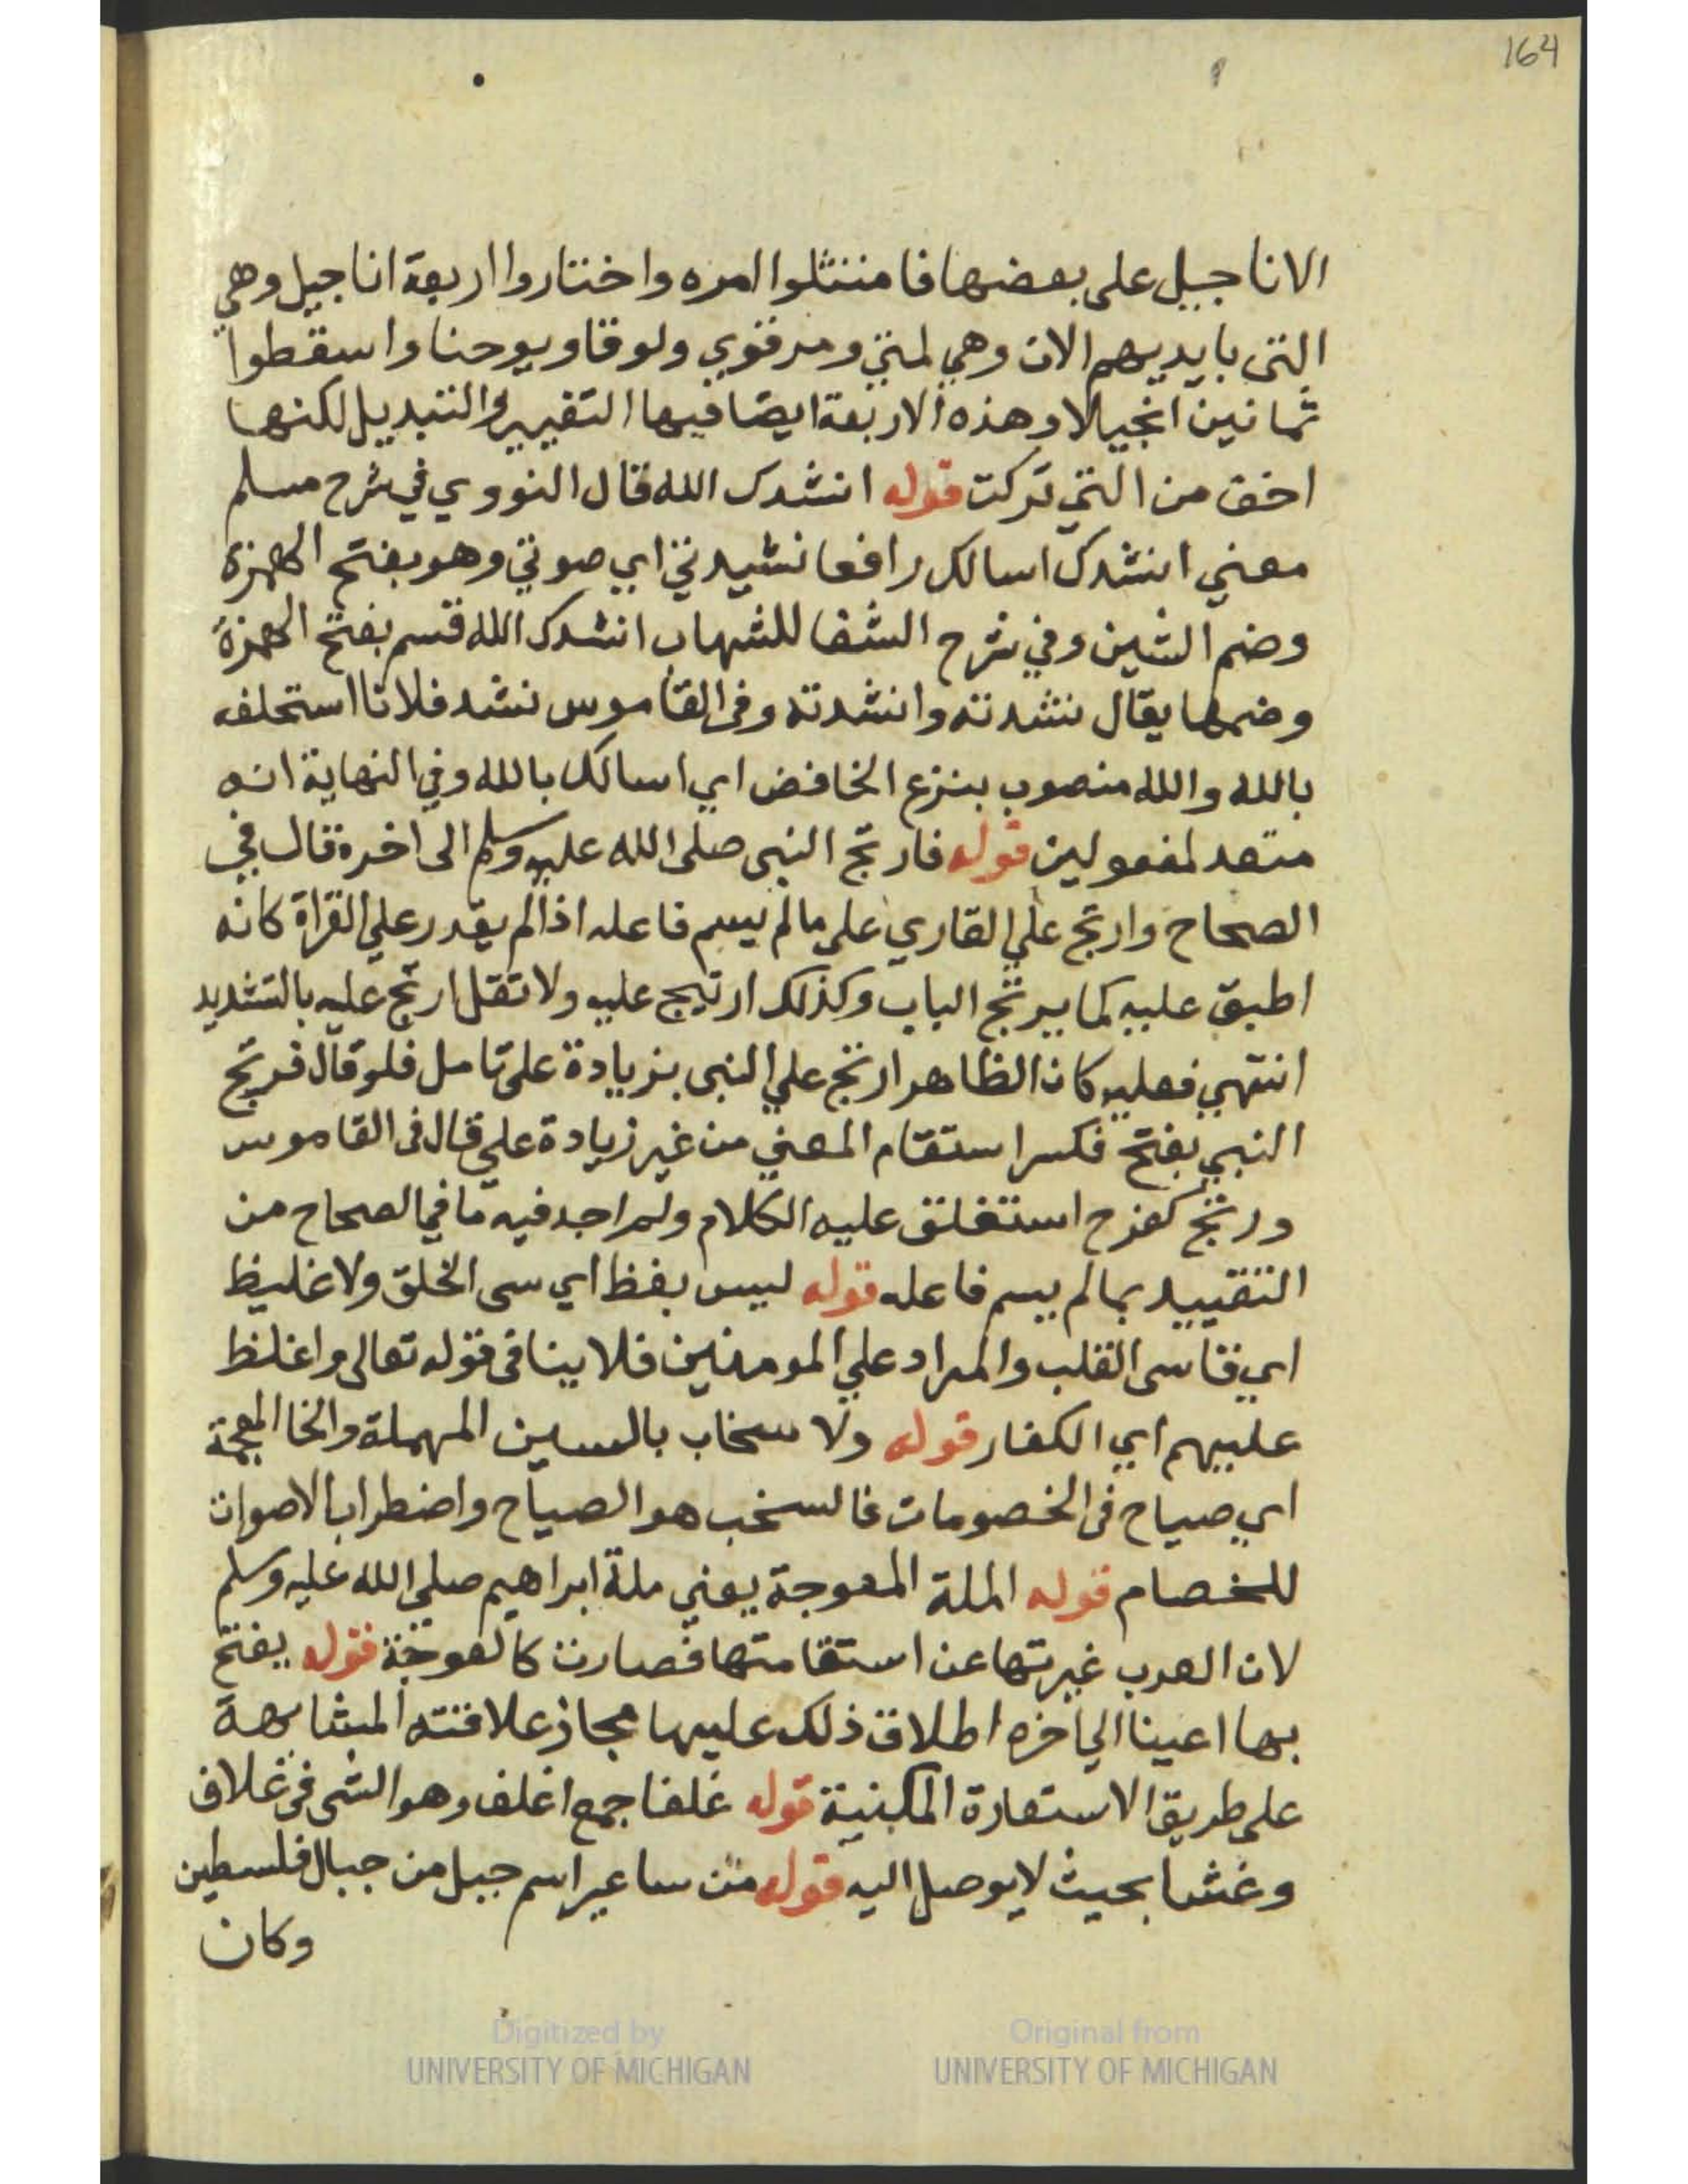 164
الاناجيل على بعضها فامتثلوا امره واختاروا اربعة اناجيل وهي
التى بايديهم الان وهي لمتي ومرقوي ولوقا ويوحنا واسقطوا
ثمانين انجيلا وهذه الاربعة ايضا فيها التغيير والتبديل لكنها
اخف من التي تركت قوله انشدك الله قال النووي في شرح مسلم
معني انشدك اسالك رافعا نشيدتي اي صوتي وهو بفتح الهمزة
وضم الشين وفي شرح الشفا للشهاب انشدك الله قسم بفتح الهمزة
وضمها يقال نشدته وانشدته وفى القاموس نشد فلانا استحلف
بالله والله منصوب بنزع الخافض اي اسالك بالله وفي النهاية انه
متعد لمفعولين قوله فارتج النبى صلى الله عليه وسلم الى اخره قال في
الصحاح وارتج علي القاري على مالم يسم فاعله اذا لم يقدر علي القراة كانه
اطبق عليه كما يرتج الباب وكذلك ارتيج عليه ولا تقل ارتج عليه بالتشديد
انتهي فعليه كان الظاهر ارتج علي النبى بزيادة على تامل فلو قال فرتج
النبي بفتح فكسر استقام المعني من غير زيادة علي قال فى القاموس
ورتج كفرح استغلق عليه الكلام ولم اجد فيه ما في الصحاح من
التقييد بمالم يسم فاعله قوله ليس بفظ اي سى الخلق ولا غليظ
اي قاسى القلب والمراد علي المومنين فلا ينافى قوله تعالى واغلظ
عليهم اي الكفار قوله ولا سخاب بالسين المهملة والخا المعجمة
اي صياح فى الخصومات فالسخب هو الصياح واضطراب الاصوات
للخصام قوله الملة المعوجة يعني ملة ابراهيم صلي الله عليه وسلم
لان العرب غيرتها عن استقامتها فصارت كالعوجة قوله يفتح
بها اعينا الي اخره اطلاق ذلك عليها مجاز علاقته المشابهة
علي طريق الاستعارة المكنية قوله غلفا جمع اغلف وهو الشى فى غلاف
وغشا بحيث لا يوصل اليه قوله من ساعير اسم جبل من جبال فلسطين
وكان
Digitized by
UNIVERSITY OF MICHIGAN
Original from
UNIVERSITY OF MICHIGAN